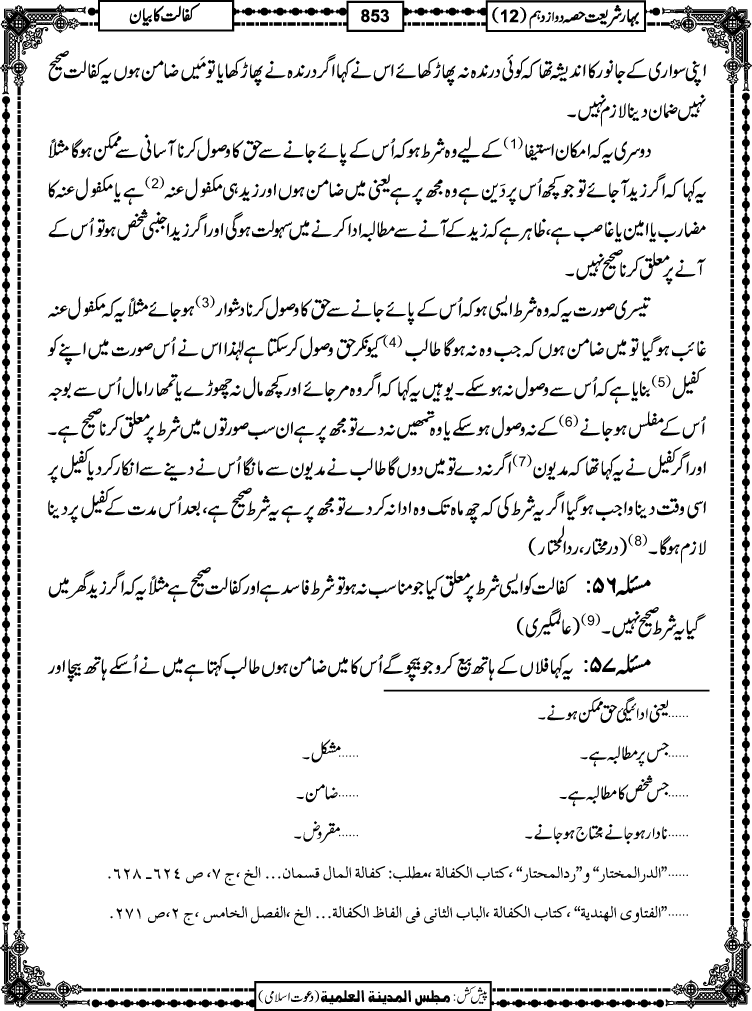 بہارِ شریعت حصہ دوازدہم (12)
853
کفالت کا بیان
اپنی سواری کے جانور کا اندیشہ تھا کہ کوئی درندہ نہ پھاڑ کھائے اس نے کہا اگر درندہ نے پھاڑ کھایا تو مَیں ضامن ہوں یہ کفالت صحیح
نہیں ضمان دینا لازم نہیں۔
دوسری یہ کہ امکان استیفا(1) کے لیے وہ شرط ہو کہ اُس کے پائے جانے سے حق کا وصول کرنا آسانی سے ممکن ہوگا مثلاً
یہ کہا کہ اگر زید آجائے تو جو کچھ اُس پر دَین ہے وہ مجھ پر ہے یعنی میں ضامن ہوں اور زید ہی مکفول عنہ(2) ہے یا مکفول عنہ کا
مضارب یا امین یا غاصب ہے، ظاہر ہے کہ زید کے آنے سے مطالبہ ادا کرنے میں سہولت ہوگی اور اگر زید اجنبی شخص ہو تو اُس کے
آنے پر معلق کرنا صحیح نہیں۔
تیسری صورت یہ کہ وہ شرط ایسی ہو کہ اُس کے پائے جانے سے حق کا وصول کرنا دشوار(3) ہوجائے مثلاً یہ کہ مکفول عنہ
غائب ہوگیا تو میں ضامن ہوں کہ جب وہ نہ ہوگا طالب(4) کیونکر حق وصول کرسکتا ہے لہٰذا اس نے اُس صورت میں اپنے کو
کفیل(5) بنایا ہے کہ اُس سے وصول نہ ہوسکے۔ یوہیں یہ کہا کہ اگر وہ مرجائے اور کچھ مال نہ چھوڑے یا تمھارا مال اُس سے بوجہ
اُس کے مفلس ہوجانے(6) کے نہ وصول ہوسکے یا وہ تمھیں نہ دے تو مجھ پر ہے ان سب صورتوں میں شرط پر معلق کرنا صحیح ہے۔
اور اگر کفیل نے یہ کہا تھا کہ مدیون(7) اگر نہ دے تو میں دوں گا طالب نے مدیون سے مانگا اُس نے دینے سے انکار کردیا کفیل پر
اسی وقت دینا واجب ہوگیا اگر یہ شرط کی کہ چھ ماہ تک وہ ادا نہ کردے تو مجھ پر ہے یہ شرط صحیح ہے، بعد اُس مدت کے کفیل پر دینا
لازم ہوگا۔(8) (درمختار، ردالمحتار)
مسئلہ ۵۶: کفالت کو ایسی شرط پر معلق کیا جو مناسب نہ ہو تو شرط فاسد ہے اور کفالت صحیح ہے مثلاً یہ کہ اگر زید گھر میں
گیا یہ شرط صحیح نہیں۔(9) (عالمگیری)
مسئلہ ۵۷: یہ کہا فلاں کے ہاتھ بیع کرو جو بیچو گے اُس کا میں ضامن ہوں طالب کہتا ہے میں نے اُسکے ہاتھ بیچا اور
......یعنی ادائیگیٔ حق ممکن ہونے۔
......جس پر مطالبہ ہے۔ ......مشکل۔
......جس شخص کا مطالبہ ہے۔ ......ضامن۔
......نادار ہوجانے محتاج ہوجانے۔ ......مقروض۔
......”الدرالمختار“ و”ردالمحتار“ ،کتاب الکفالة ،مطلب: کفالة المال قسمان... الخ ،ج ۷، ص ٦٢٤ـ ٦٢٨.
......”الفتاوی الهندیة“ ،کتاب الکفالة ،الباب الثانی فی الفاظ الکفالة... الخ ،الفصل الخامس ،ج ٢،ص ٢٧١.
پیش کش: مجلس المدینة العلمیة (دعوت اسلامی)